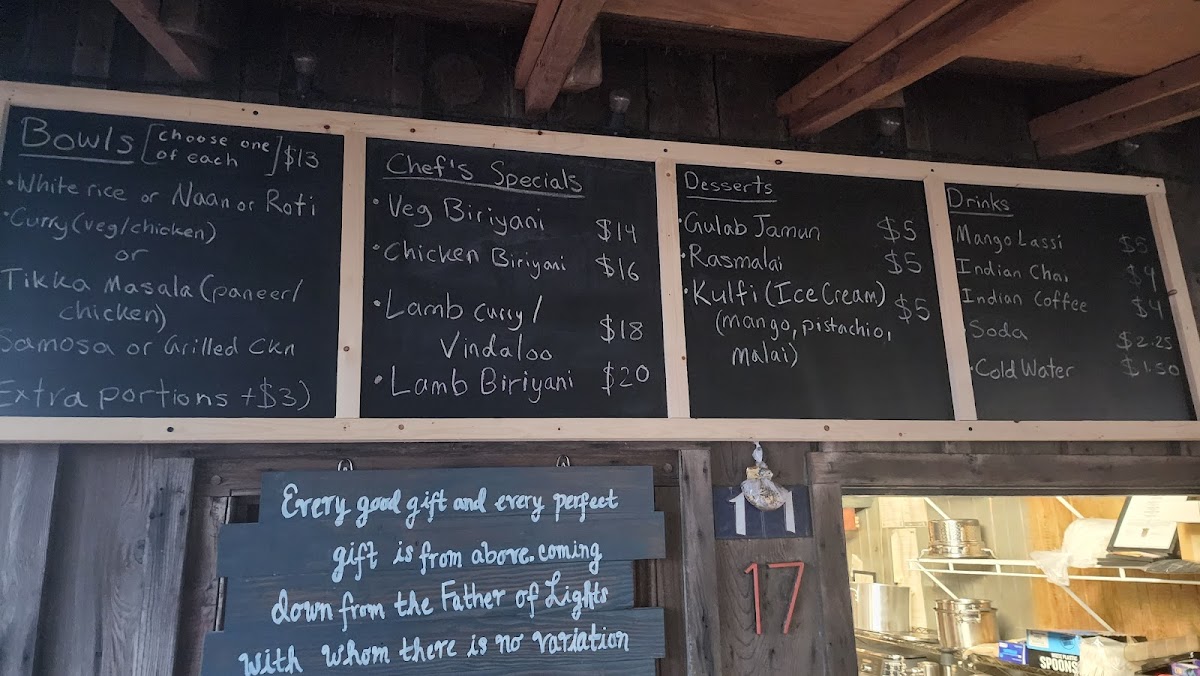 Bowls [choose one of each] $13
•White rice or Naan or Roti
•Curry (veg/chicken)
or
Tikka Masala (paneer/
chicken)
Samosa or Grilled Ckn
Extra portions +$3)
Chef's Specials
•Veg Biriyani $14
•Chicken Biriyani $16
•Lamb curry/
Vindaloo $18
•Lamb Biriyani $20
Desserts
•Gulab Jamun $5
•Rasmalai $5
•Kulfi (Ice Cream) $5
(mango, pistachio,
malai)
Drinks
Mango Lassi $5
Indian Chai $4
Indian Coffee $4
•Soda $2.25
•Cold Water $1.50
Every good gift and every perfect
gift is from above. coming
down from the Father of Lights
with whom there is no variation
17
SPOONS